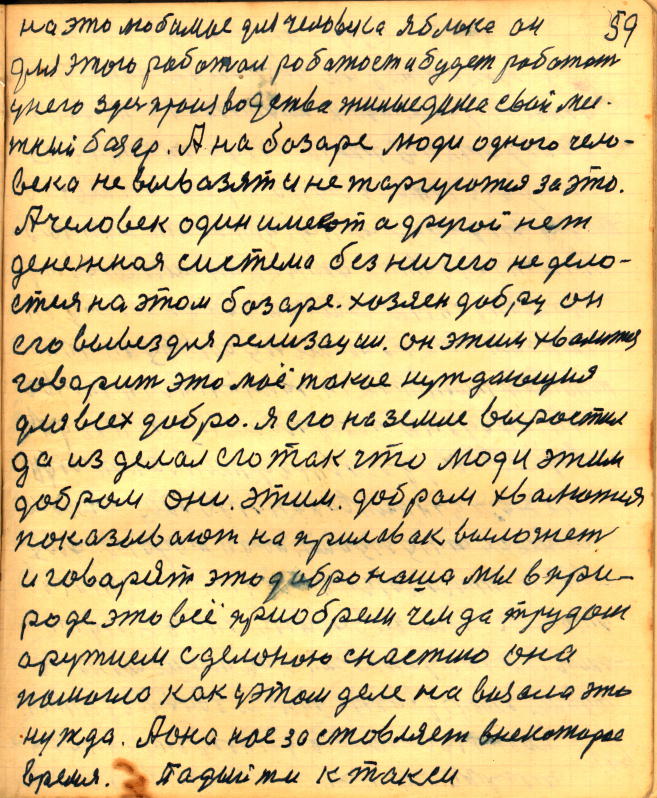 на это любимое для человека яблока он 59
для этого работал роботости будет работат
унего здех производства жиныедика свой ме-
тний базар. А на бозаре люди одного чело-
века не вывазят и не таргуготся за это.
А человек один имеют а другой нет
денежная система без ничего не дело-
ется на этом бозаре. хозяен добру он
его вывез для релизации. он этим хвалится
говарит это моё такое нуждающия
для всех добро. я его на земле выростил
да из делал его так что люди этим
добром они. этим. добрам хвалются
показывают на прилавак выложет
и говарят это добро наша мы в при-
роде это всё приобрели чем да трудом
арутием сделоною снастию она
помогло как у этом деле на вязала эта
нужда. А она нас зоставляет внекоторое
время. Падийти к такси